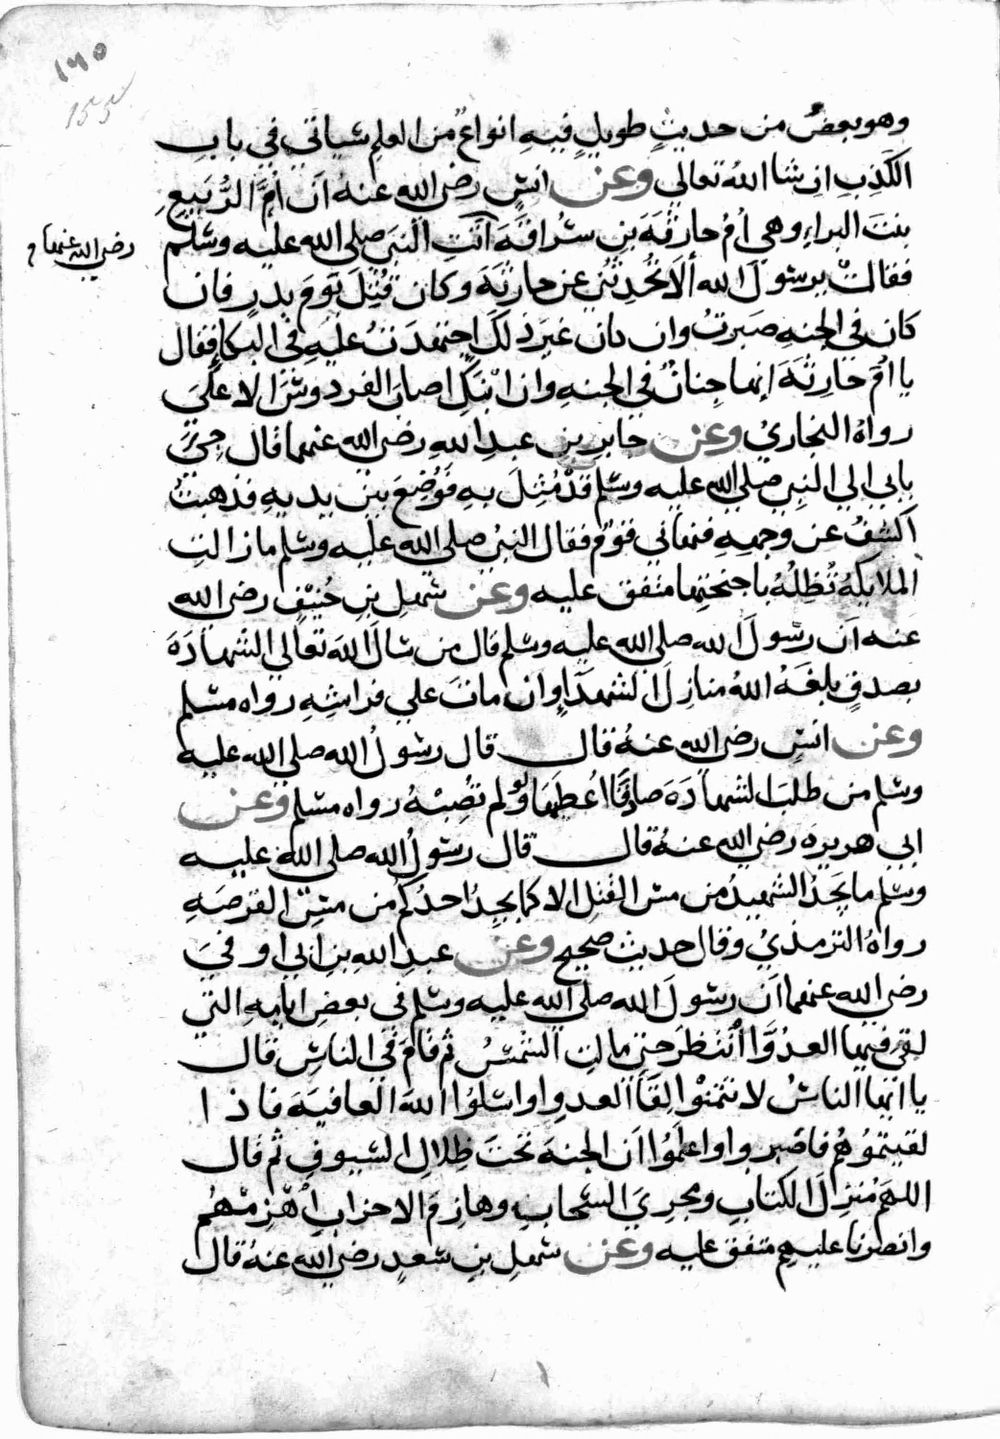 ١٦٥
155
وهو بعض من حديثٍ طويلٍ فيه انواعٌ من العلم سياتي في باب
الكذِبِ ان شا الله تعالي وعن انسٍ رضي الله عنهُ اَن اُمَّ الرُّبَيِعِ
بنتَ البراءِ وهي اُمُ حارثةَ بنِ سُراقةَ اَتَتِ النبيَ صلي الله عليه وسلم
رضي الله عنهما
فقالت يرسولَ الله ألاَ تحُدِثُني عن حارِثَةَ وكان قُتِلَ يَومَ بدرٍ فان
كان في الجنةِ صَبرتُ وان كان غيرَ ذلكَ اجتهدتُ عليهِ في البكاءِ فقال
يا اُمَ حارِثةَ اِنها جِنانٌ في الجنةِ وان ابنَكِ اصابَ الفردوسَ الاعلَي
رواهُ البخاريُ وعن جابرِ بنِ عبدِ اللهِ رضي الله عنهما قال جِيَ
بابي الي النبيِ صلي الله عليه وسلم قد مُثِلَ بهِ فَوُضِعَ بين يديهِ فذهبتُ
اكشفُ عن وجههِ فنهاني قومٌ فقال النبيُ صلي الله عليه وسلم مازالت
الملايكةُ تُظِلُهُ باجنحتِها متفق عليه وعن سهلِ بنِ حُنَيْفٍ رضي الله
عنه اَن رسولَ الله صلي الله عليه وسلم قال من سالَ اللهَ تعالي الشهادَةَ
بصدقٍ بلغَهُ اللهُ منازِلَ الشهدَاءِ وان ماتَ علي فراشِهِ رواه مسلم
وعن انسٍ رضي الله عنهُ قال قال رسولُ الله صلي الله عليه
وسلم من طلبَ الشهادَةَ صادِقًا اُعطِيَها وَلَو لم تُصِبْهُ رواه مسلم وعن
ابي هريرةَ رضي الله عنهُ قال قال رسولُ الله صلي الله عليه
وسلم ما يجَدُ الشهيدُ من مسِ القتلِ الا كما يجِدُ احدُكُم من مسِ القرصَةِ
رواهُ الترمذيُ وقال حديث صحيح وعن عبدِ اللهِ بنِ ابي اوفيَ
رضي الله عنهما اَن رسولَ الله صلي الله عليه وسلم في بعضِ ايامِهِ التي
لقيَ فيها العدُوَّ انتظرَ حتي مالت الشمسُ ثم قامَ في الناسِ قال
يا ايها الناسُ لا تتمنوْا لِقَا العدوِ واسئلُوا اللهَ العافيةَ فاذا
لقيتمُوهُم فاصبروا واعلمُوا اَن الجنةَ تحتَ ظِلالِ السيوفِ ثم قال
اللهمَ مُنزِلَ الكتابِ ومجُرِيَ السَّحابِ وهازِمَ الاحزابِ اِهزِمْهُم
وانصرنا عليهم متفق عليه وعن سهلِ بنِ سعدٍ رضي الله عنهُ قال